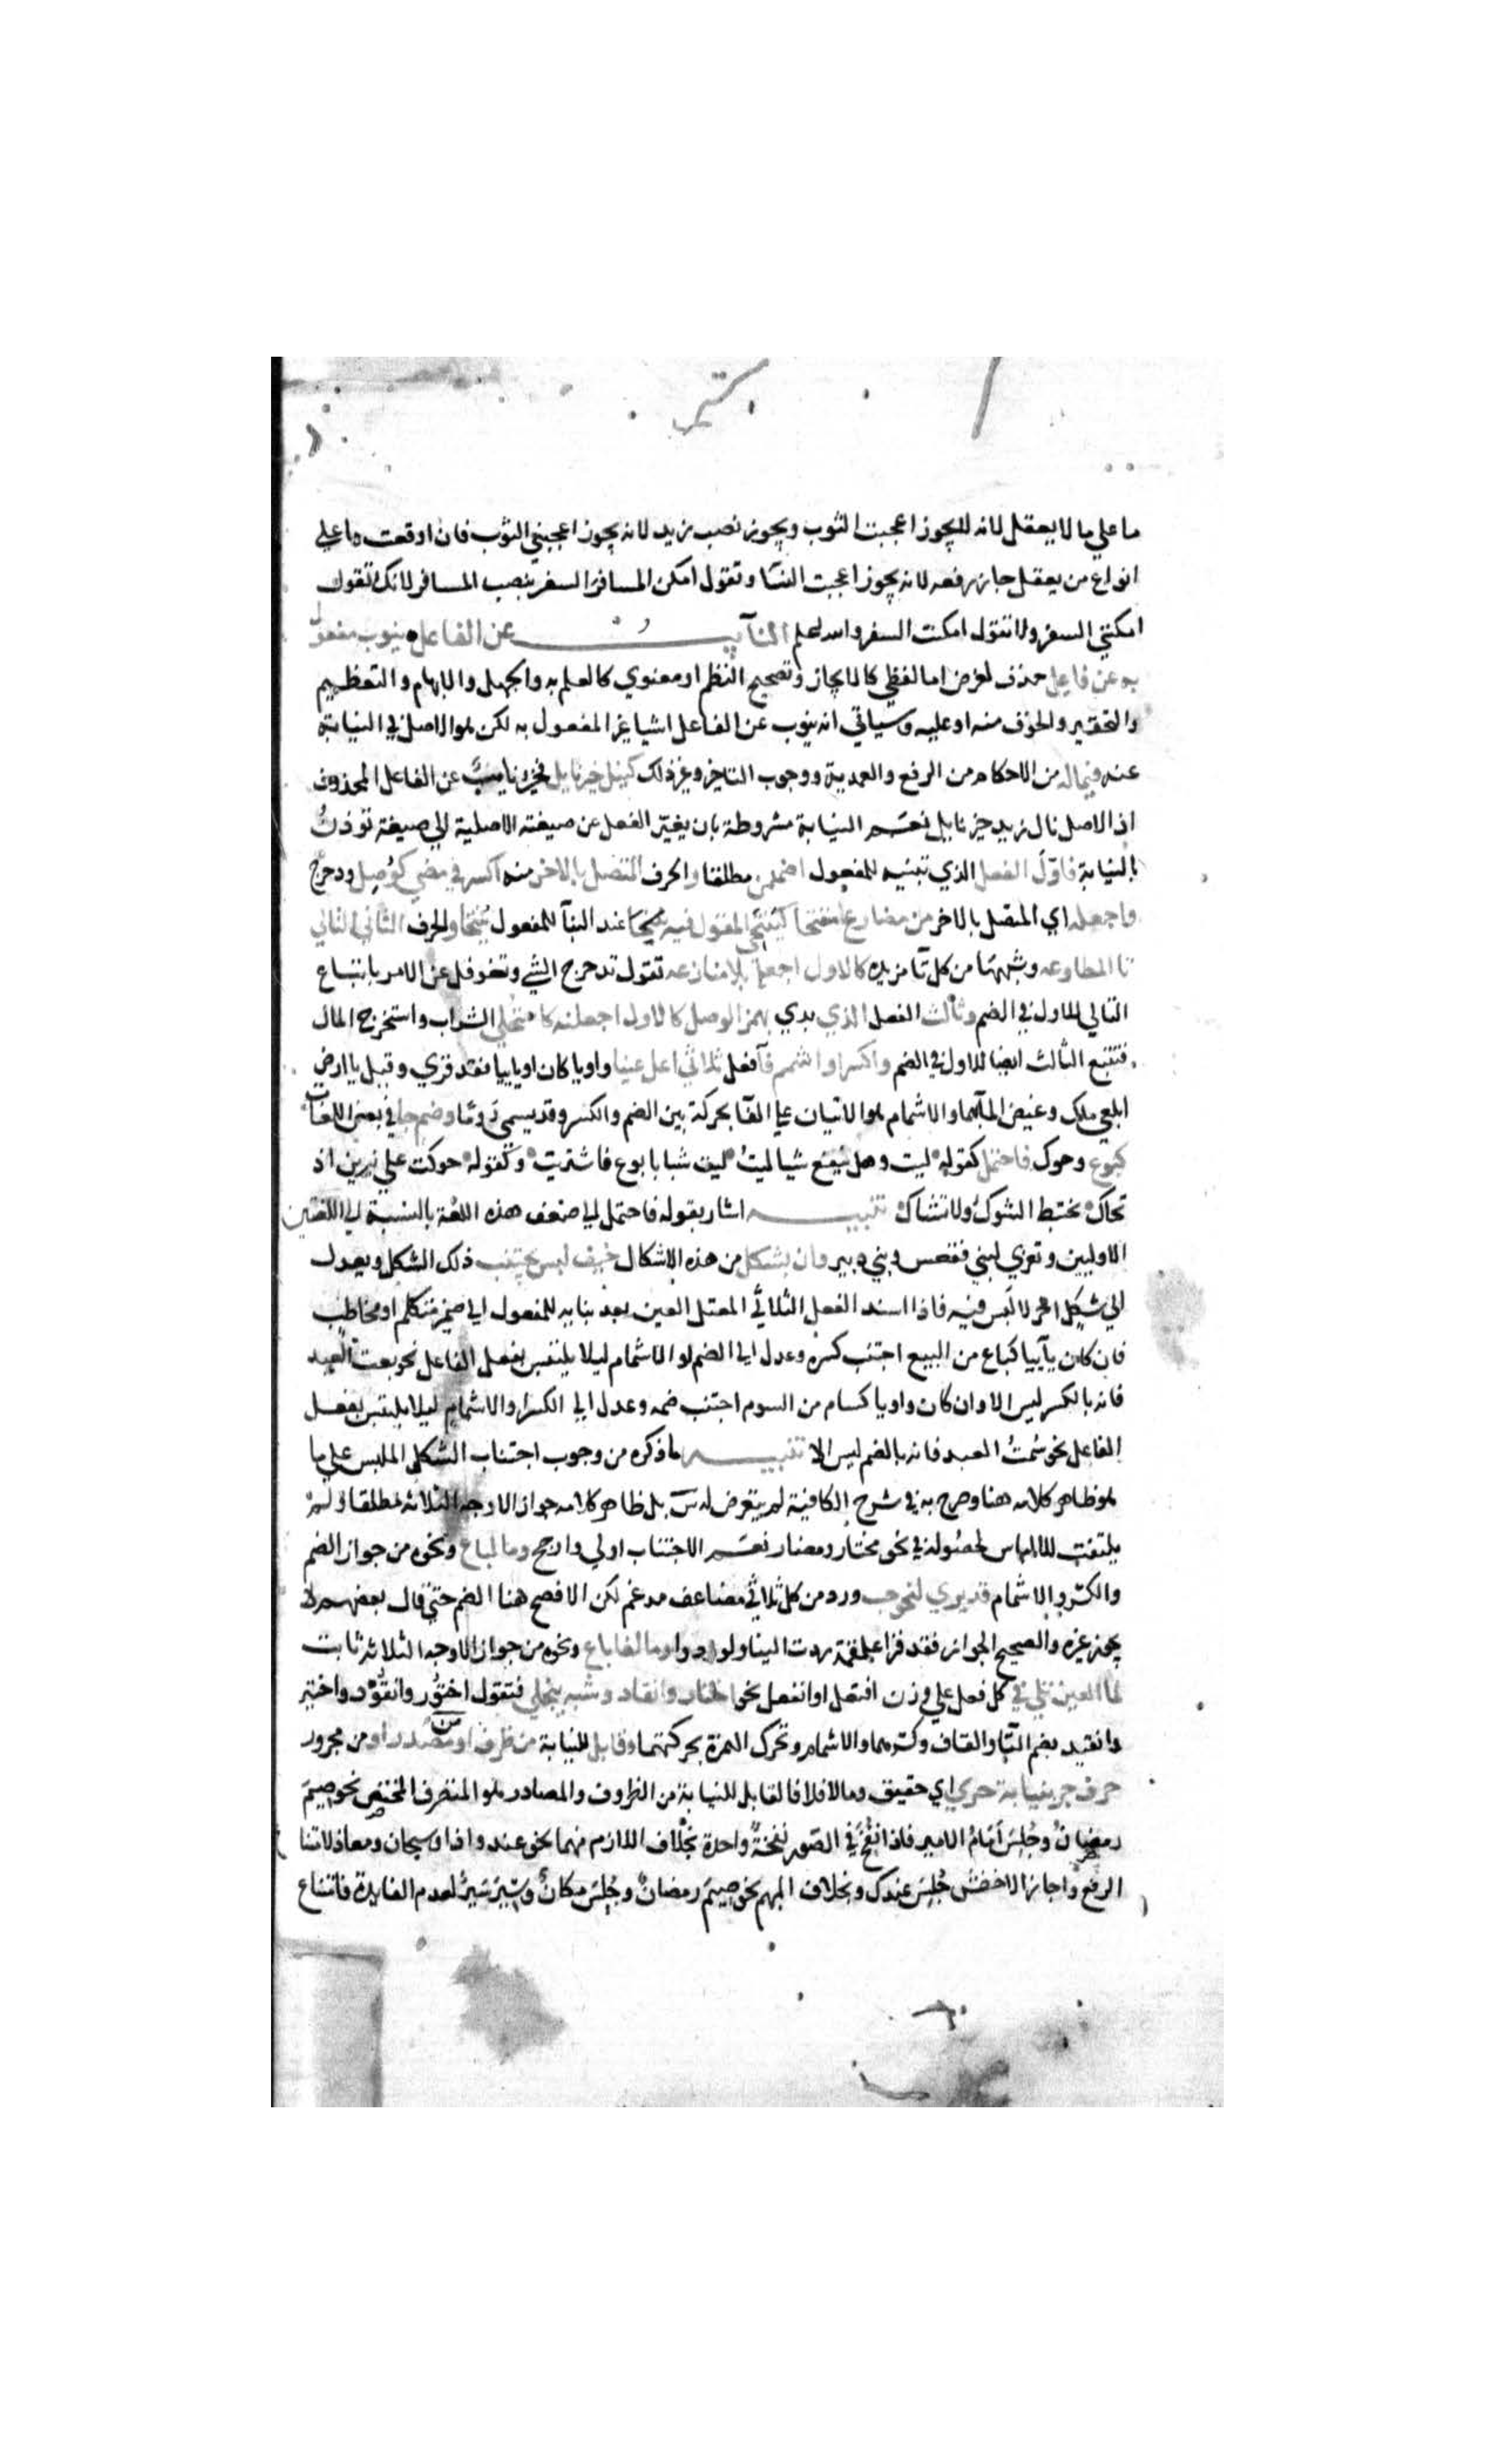 ما علي ما لا يعقل لانه لا يجوز اعجبت الثوب ويجوز نصب زيد لانه يجوز اعجبني الثوب فان اوقعت ما علي
انواع من يعقل جاز رفعه لانه يجوز اعجبت النسا وتقول امكن المسافر السفر بنصب المسافر لانك تقول
امكنني السفر ولا تقول امكنت السفر والله اعلم النايب عن الفاعل ينوب مفعول
به عن فاعل حذف لغرض اما لفظي كالايجاز وتصحيح النظم او معنوي كالعلم به والجهل والابهام والتعظيم
والتحقير والخوف منه او عليه وسياتي انه ينوب عن الفاعل اشيا غير المفعول به لكن هو الاصل في النيابة
عنه فيما له من الاحكام من الرفع والعمدية ووجوب التاخير وغير ذلك كنيل خير نايل فخير نايب عن الفاعل المحذوف
اذ الاصل نال زيد خير نايل نعم النيابة مشروطة بان يغير الفعل عن صيغته الاصلية الي صيغة توذن
بالنيابة فاول الفعل الذي تبنيه للمفعول اضممن مطلقا والحرف المتصل بالاخر منه اكسر في مضي كوصل ودحرج
واجعله اي المتصل بالاخر من مضارع منفتحا كينتحي المقول فيه عند البنا للمفعول ينتحا والحرف الثاني التالي
تا المطاوعه وشبهها من كل تا مزيده كالاول اجعله بلا منازعه تقول تدحرج الشي وتغوفل عن الامر باتباع
التالي للاول في الضم وثالث الفعل الذي بدي بهمز الوصل كالاول اجعلنه كاستحلي الشراب واستخرج المال
فتتبع الثالث ايضا للاول في الضم واكسر او اشمم فا فعل ثلاثي اعل عينا واويا كان او ياييا فقد قري وقيل يا ارض
ابلعي ماك وغيض الما بهما والاشمام هو الاتيان علي الفا بحركة بين الضم والكسر وقد يسمي روما وضم جا في بعض اللغات
كبوع وحوك فاحتمل كقوله ليت وهل ينفع شيا ليت ليت شبابا بوع فاشتريت وكقوله حوكت علي نيرين اذ
تحاك تختبط الشوك ولا تشاك تنبيه اشار بقوله فاحتمل الي ضعف هذه اللغة بالنسبة الي اللغتين
الاوليين وتعزي لبني فقعس وبني دبير وان بشكل من هذه الاشكال خيف لبس يجتنب ذلك الشكل ويعدل
الي شكل اخر لا لبس فيه فاذا اسند الفعل الثلاثي المعتل العين بعد بنايه للمفعول الي ضمير متكلم او مخاطب
فان كان ياييا كباع من البيع اجتنب كسره وعدل الي الضم او الاشمام ليلا يلتبس بفعل الفاعل نحو بعت العبد
فانه بالكسر ليس الا وان كان واويا كسام من السوم اجتنب ضمه وعدل الي الكسر او الاشمام ليلا يلتبس بفعل
الفاعل نحو سمت العبد فانه بالضم ليس الا تنبيه ما ذكره من وجوب اجتناب الشكل الملبس علي ما
هو ظاهر كلامه هنا وصرح به في شرح الكافية لم يتعرض له س بل ظاهر كلامه جواز الاوجه الثلاثه مطلقا ولم
يلتفت للالباس لحصوله في نحو مختار ومضار نعم الاجتناب اولي وارجح وما لباع ونحوه من جواز الضم
والكسر والاشمام قد يري لنحو حب ورد من كل ثلاثي مضاعف مدغم لكن الافصح هنا الضم حتي قال بعضهم لا
يجوز غيره والصحيح الجواز فقد قرا علقمة ردت الينا ولو ردوا وما لفا باع ونحوه من جواز الاوجه الثلاثة ثابت
لما العين تلي في كل فعل علي وزن افتعل او انفعل نحو اختار وانقاد وشبه ينجلي فتقول اختور وانقود واختير
وانقيد بضم التا والقاف وكسرهما والاشمام وتحرك الهمزة بحركتهما وقابل للنيابة من ظرف او من مصدر او من مجرور
حرف جر بنيابة حري اي حقيق وما لا فلا فالقابل للنيابة من الظروف والمصادر هو المتصرف المختص نحو صيم
رمضان وجلس امام الامير فاذا نفخ في الصور نفخة واحدة بخلاف اللازم منهما نحو عند واذا وسبحان ومعاذ لامتناع
الرفع واجاز الاخفش جلس عندك وبخلاف المبهم نحو صيم رمضان وجلس مكان وسير سير لعدم الفايدة فامتناع